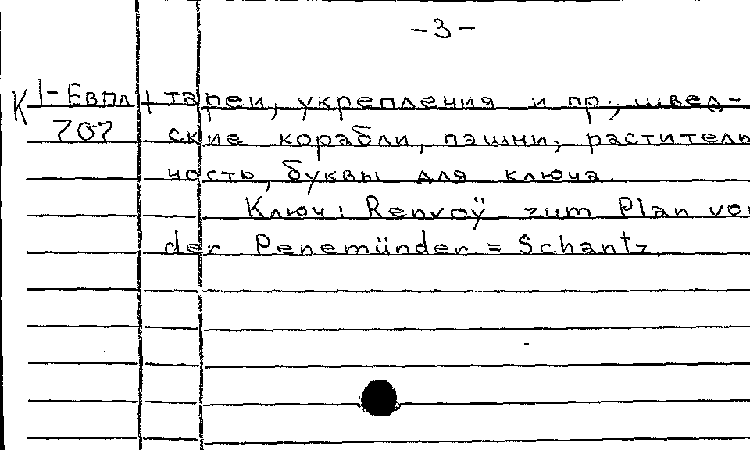 -3-
К 1-Евпл + тареи, укрепления и пр., швед-
707 ские корабли, пашни, раститель
ность, буквы для ключа.
Ключ: Renvoÿ zum Plan von
der Penemünder = Schantz